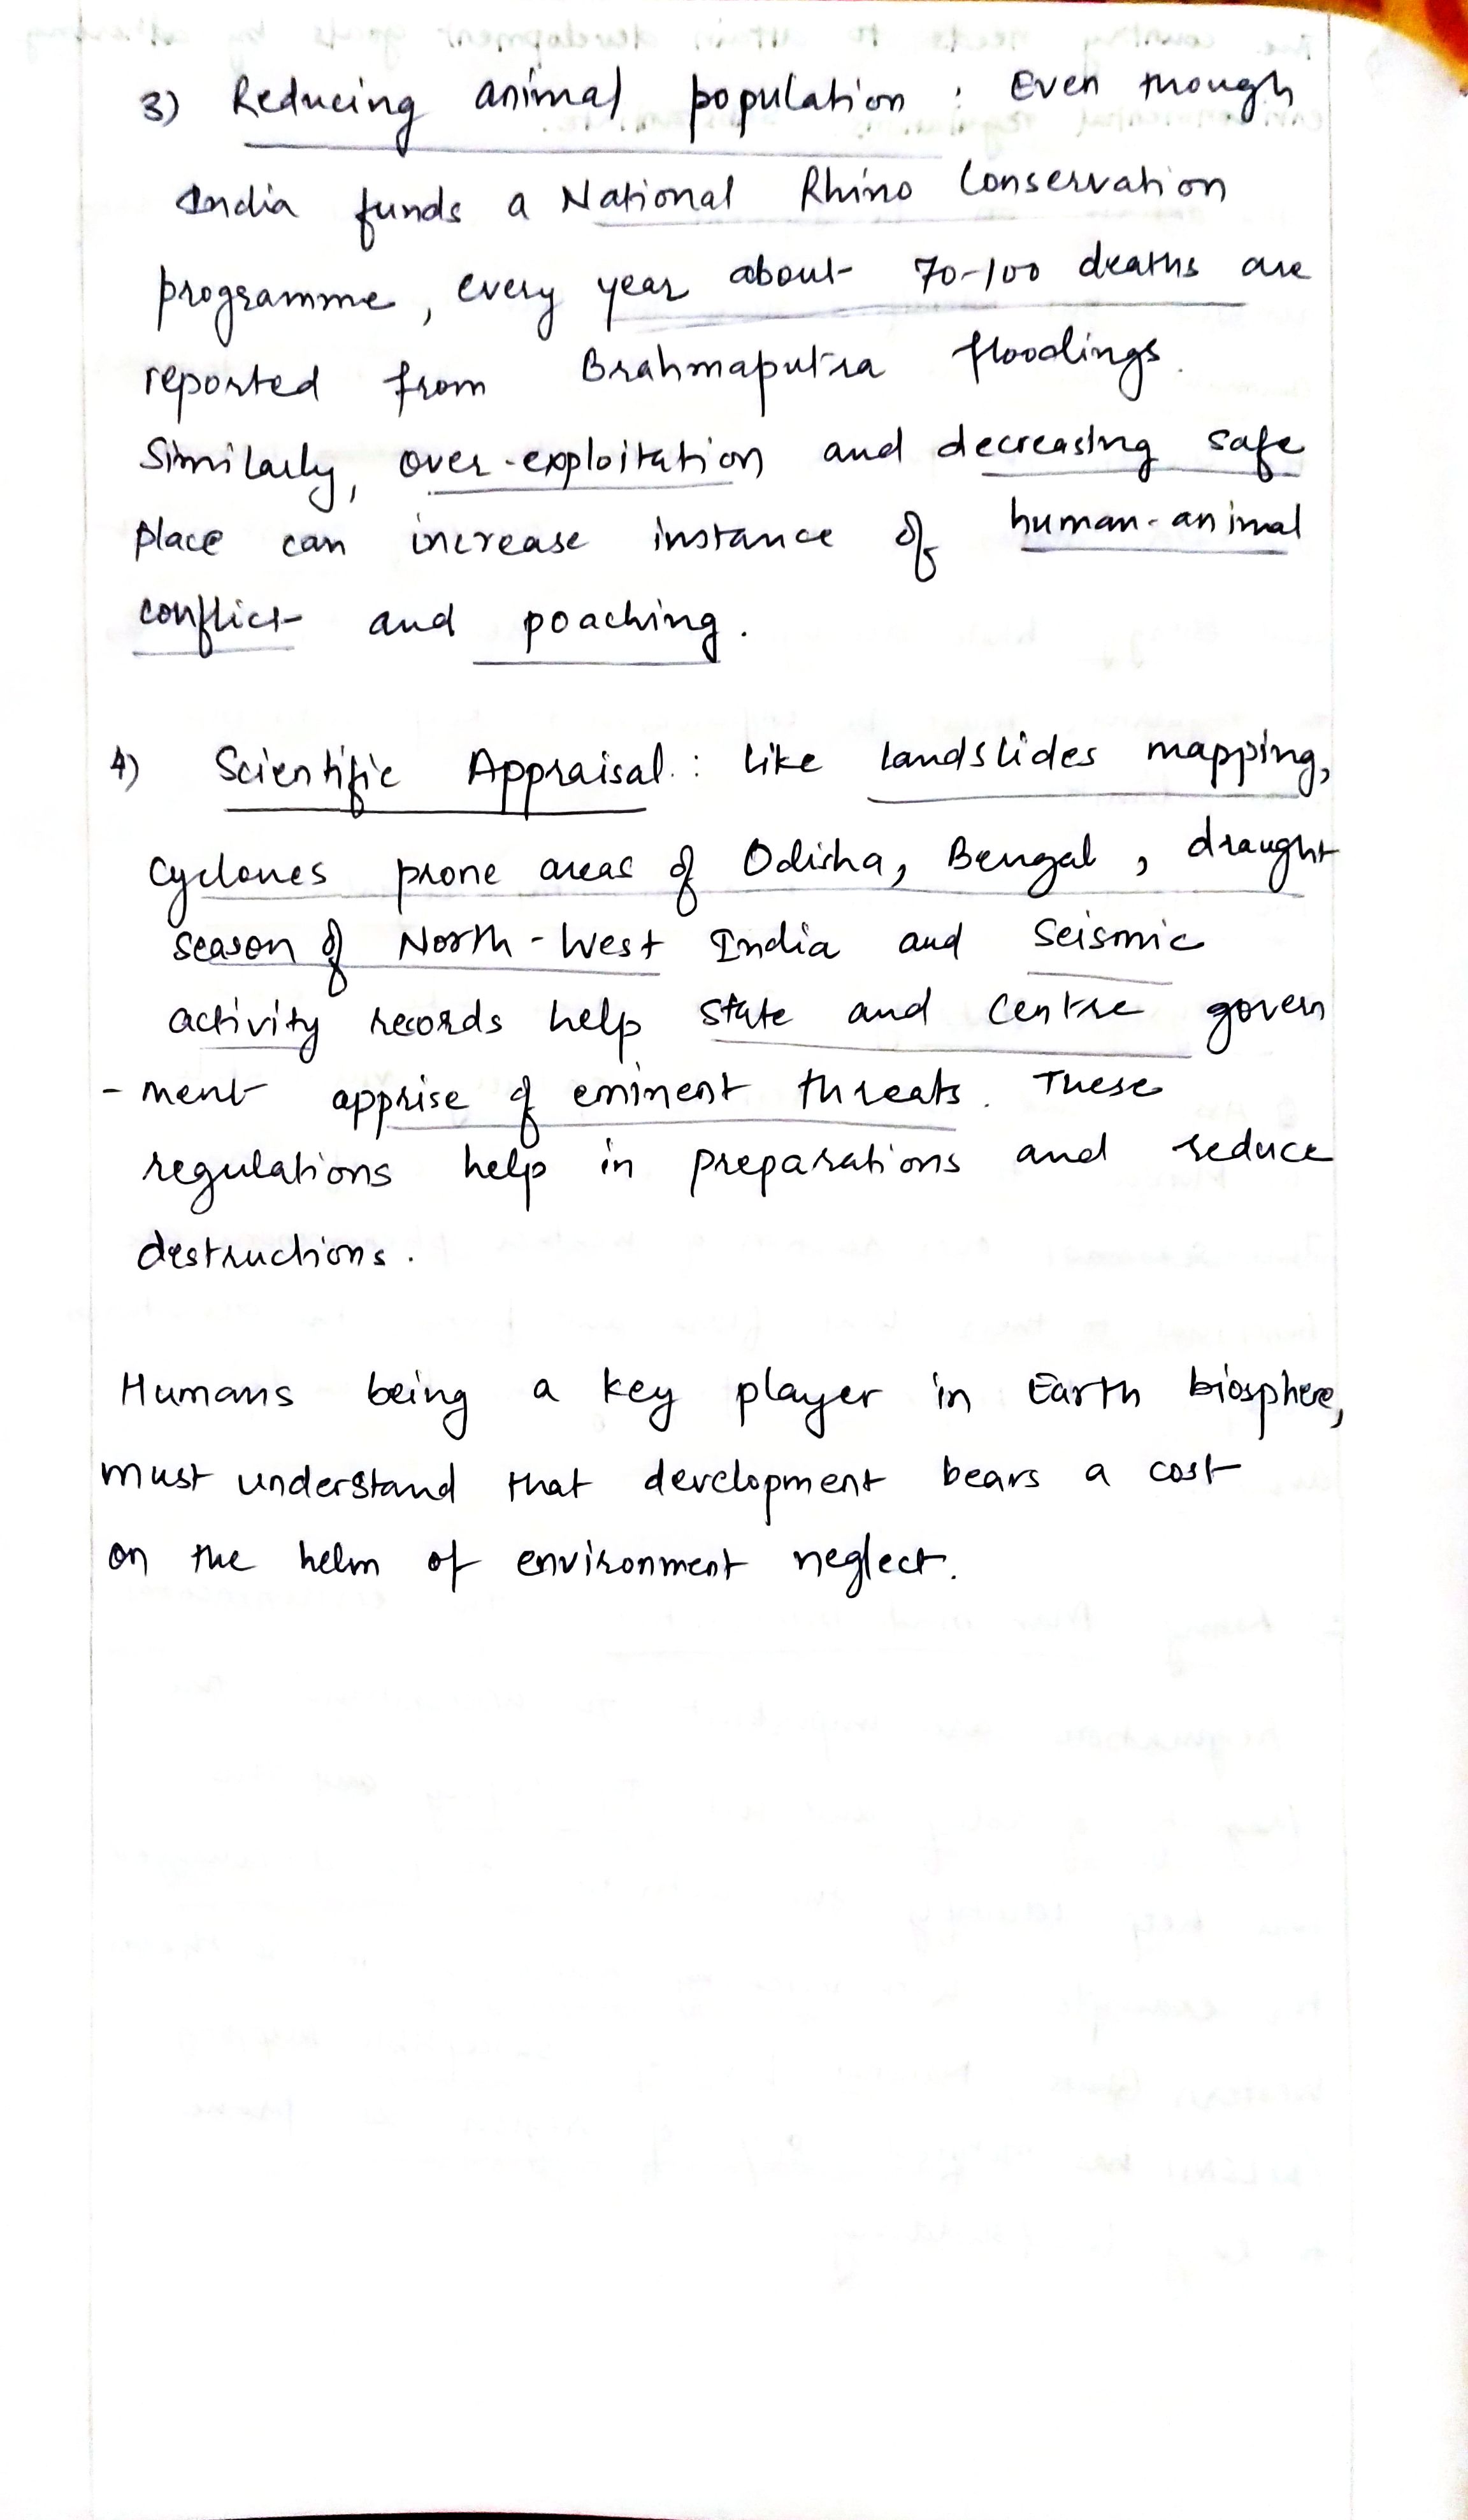 3) Reducing animal population : Even though
India funds a National Rhino Conservation
programme, every year about 70-100 deaths are
reported from Brahmaputra floodings.
Similarly, over-exploitation and decreasing safe
place can increase instance of human-animal
conflict and poaching.
4) Scientific Appraisal : like landslides mapping,
Cyclones prone areas of Odisha, Bengal, draught
season of North-West India and Seismic
activity records help state and centre govern
-ment apprise of eminent threats. These
regulations help in preparations and reduce
destructions.
Humans being a key player in Earth biosphere,
must understand that development bears a cost
on the helm of environment neglect.